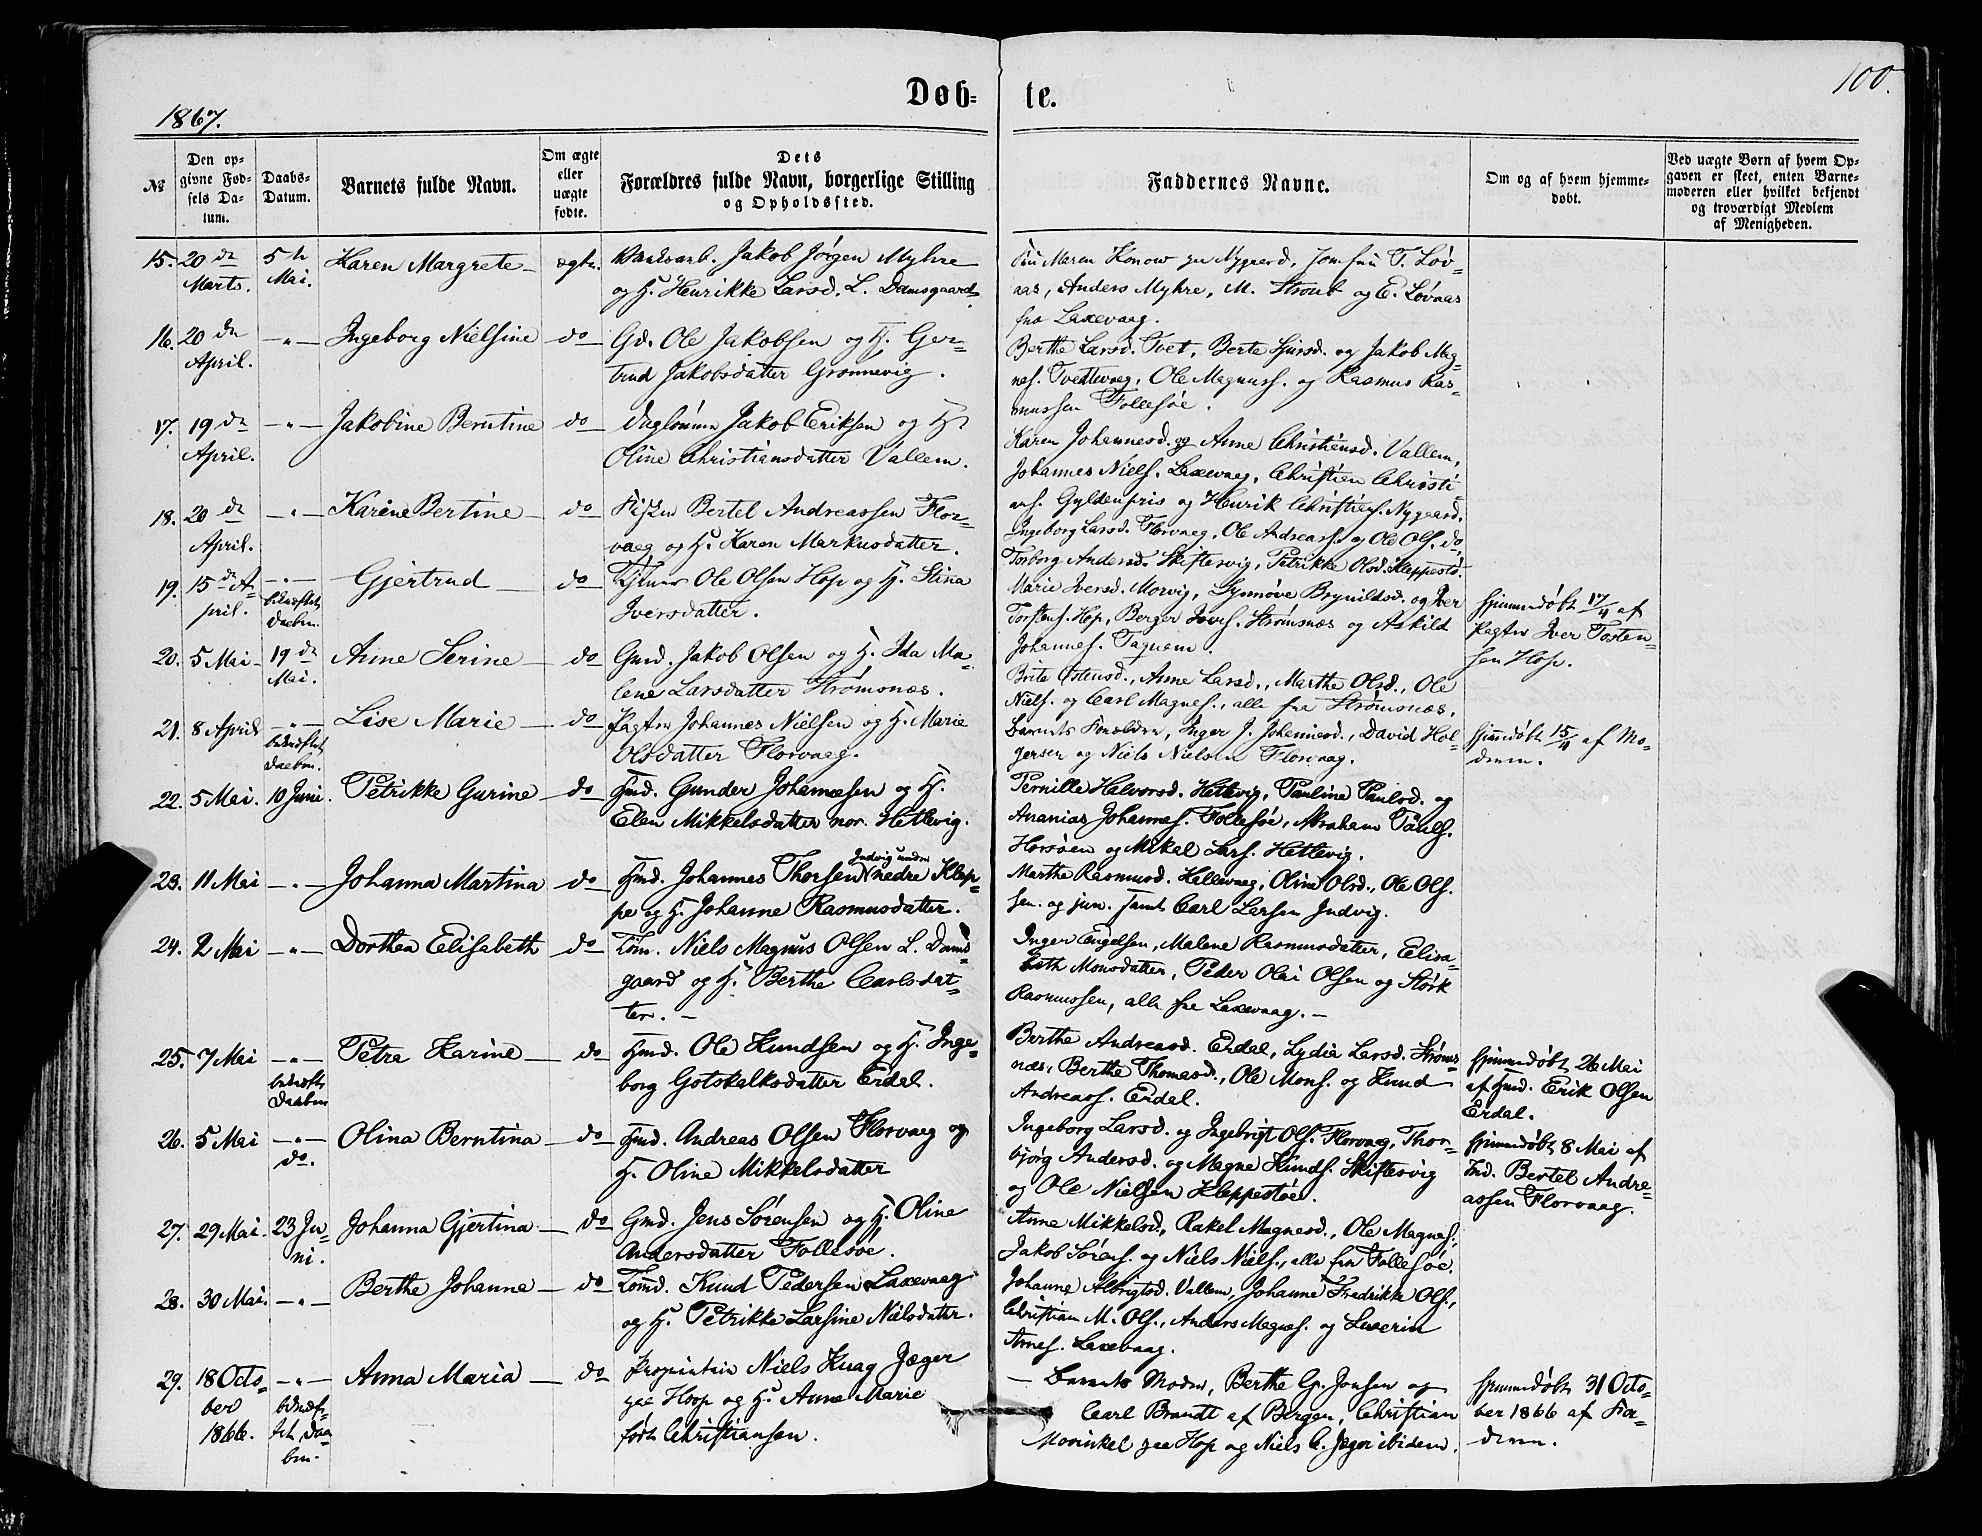 Døb-te.
100.
1867.
№
Den opgivne Fødsels Datum.
Daabs-Datum.
Barnets fulde Navn.
Om ægte eller uægte fødte.
Dets Forældres fulde Navn, borgerlige Stilling og Opholdssted.
Faddernes Navne.
Om og af hvem hjemmedøbt.
Ved uægte Børn af hvem Opgaven er skeet, enten Barnemoderen eller hvilket bekjendt og troværdigt Medlem af Menigheden.
15. 20de Marts. 5te Mai. Karen Margrete ægte. Jakob Jørgen Myhre
og H. Henrikke Larsd. L. Damsgaard.
Maren Konow Nygaard, Jomfru T. Løv-
aas, Anders Myhre, M. Stroub og E. Løvaas
fra Laxevaag.
16. 20de April. —"— Ingeborg Nielsine do Gd. Ole Jakobsen og H. Ger-
trud Jakobsdatter Grønnevig.
Berthe Larsd. Tvet, Berte Sjursd. og Jakob Mag-
nes. Tvedtevaag, Ole Magnuss. og Rasmus Ras-
mussen Follesøe.
17. 19de April. —"— Jakobine Berntine do Daglønner Jakob Eriksen og H.
Oline Christiansdatter Vallem.
Karen Johannesd. og Anne Christiensd. Vallem,
Johannes Niels. Laxevaag, Christien Christi-
ans. Gyldenpris og Henrik Christians. Nygaard.
18. 20de April. —"— Karine Bertine do Fisker Bertel Andreassen Flor-
vaag og H. Karen Markusdatter.
Ingeborg Larsd. Florvaag, Ole Andreass. og Ole Ols. do,
Torborg Andersd. Skiftesvig, Petrikke Olsd. Kleppestø.
19. 15de April. —"— bekræftet Daaben. Gjertrud do Ole Olsen Hop og H. Stina
Iversdatter.
Marie Iversd. Morvig, Synnøve Brynildsd. og Iver
Torstens. Hop, Berger Ivers. Strømsnæs og Askild
Johannes.
Hjemmedøbt 17/4 af
Pagter Iver Tosten-
sen Hop.
20. 5 Mai 19de Mai. Anne Serine do Gmd. Jakob Olsen og H. Ida Ma-
lene Larsdatter Strømsnæs.
Brite Østensd., Anne Larsd., Marthe Olsd., Ole
Niels. og Carl Magnes., alle fra Strømsnæs.
21. 8 April —"— bekræftet Daaben. Lise Marie do Pagter Johannes Nielsen og H. Marie
Olsdatter Florvaag.
Barnets Forældre, Inger J. Johannesd., David Hol-
gersen og Niels Nielsen Florvaag.
Hjemmedøbt 15/4 af Mo-
deren.
22. 5 Mai. 10 Juni. Petrikke Gurine do Hmd. Gunder Johannesen og H.
Elen Mikkelsdatter nor. Hetlevig.
Pernille Halvorsd. Hetlevig, Pauline Paulsd. og
Ananias Johannes. Follesøe, Abraham Pauls.
Horsøen og Mikal Lars. Hetlevig.
23. 11 Mai —"— Johanna Martina do Hmd. Johannes Thorsen Indvig under nedre Klep-
pe og H. Johanne Rasmusdatter.
Marthe Rasmusd. Hellevaag, Oline Olsd., Ole Ols.
sen. og jun. samt Carl Larsen Indvig.
24. 2 Mai —"— Dorthea Elisabeth do Tøm. Niels Magnus Olsen L. Dams-
gaard og H. Berthe Carlsdat-
ter.
Inger Engelsen, Malene Rasmusdatter, Elisa-
beth Monsdatter, Peder Olai Olsen og Størk
Rasmussen, alle fra Laxevaag.
25. 7 Mai —"— bekræftet Daaben Petra Karine do Hmd. Ole Knudsen og H. Inge-
borg Gotskalksdatter Erdal.
Berthe Andreasd. Erdal, Lydia Larsd. Strøms-
næs, Berthe Thomasd., Ole Mons. og Knud
Andreass. Erdal.
Hjemmedøbt 26 Mai
af Hmd. Erik Olsen
Erdal.
26. 5 Mai —"— do. Olina Berntina do Hmd. Andreas Olsen Florvaag og
H. Oline Mikkelsdatter
Ingeborg Larsd. og Ingebrigt Ols. Florvaag, Thor-
bjørg Andersd. og Magne Knuds. Skiftesvig
og Ole Nielsen Kleppestøe.
Hjemmedøbt 8 Mai af
Bertel Andre-
assen Florvaag.
27. 29 Mai. 23 Juni. Johanna Gjertina do Gmd. Jens Sørensen og H. Oline
Andersdatter Follesøe.
Anne Mikkelsd., Rakel Magnesd., Ole Magnes.,
Jakob Sørens. og Niels Niels., alle fra Follesøe.
28. 30 Mai. —"— Berthe Johanne do Tømd. Knud Pedersen Laxevaag
og H. Petrikke Larsine Nielsdatter.
Johanne Vallem, Johanne Fredrikke Ols.,
Christian M. Ols., Anders Magnes. og Severin
Arnes. Laxevaag.
29. 18 Octo-
ber
1866. —"— bekræf-
tet Daa-
ben. Anna Maria do Proprietær Niels Knag Jæger
paa Hoop og H. Anne Marie
født Christiansen.
Barnets Moder, Berthe G. Jensen og
Carl Brandt af Bergen, Christian
Mowinkel paa Hop og Niels C. Jæger ibidem.
Hjemmedøbt 31 Octo-
ber 1866 af Fa-
deren.